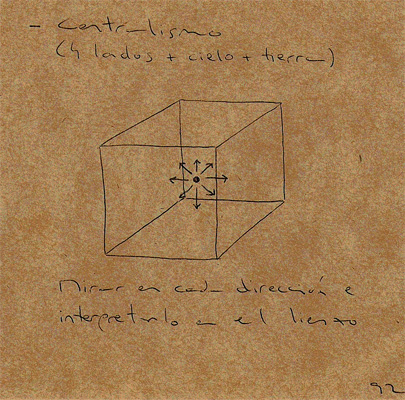 - Centralismo
(4 lados + cielo + tierra)
Mirar en cada dirección e
interpretarlo en el lienzo
92